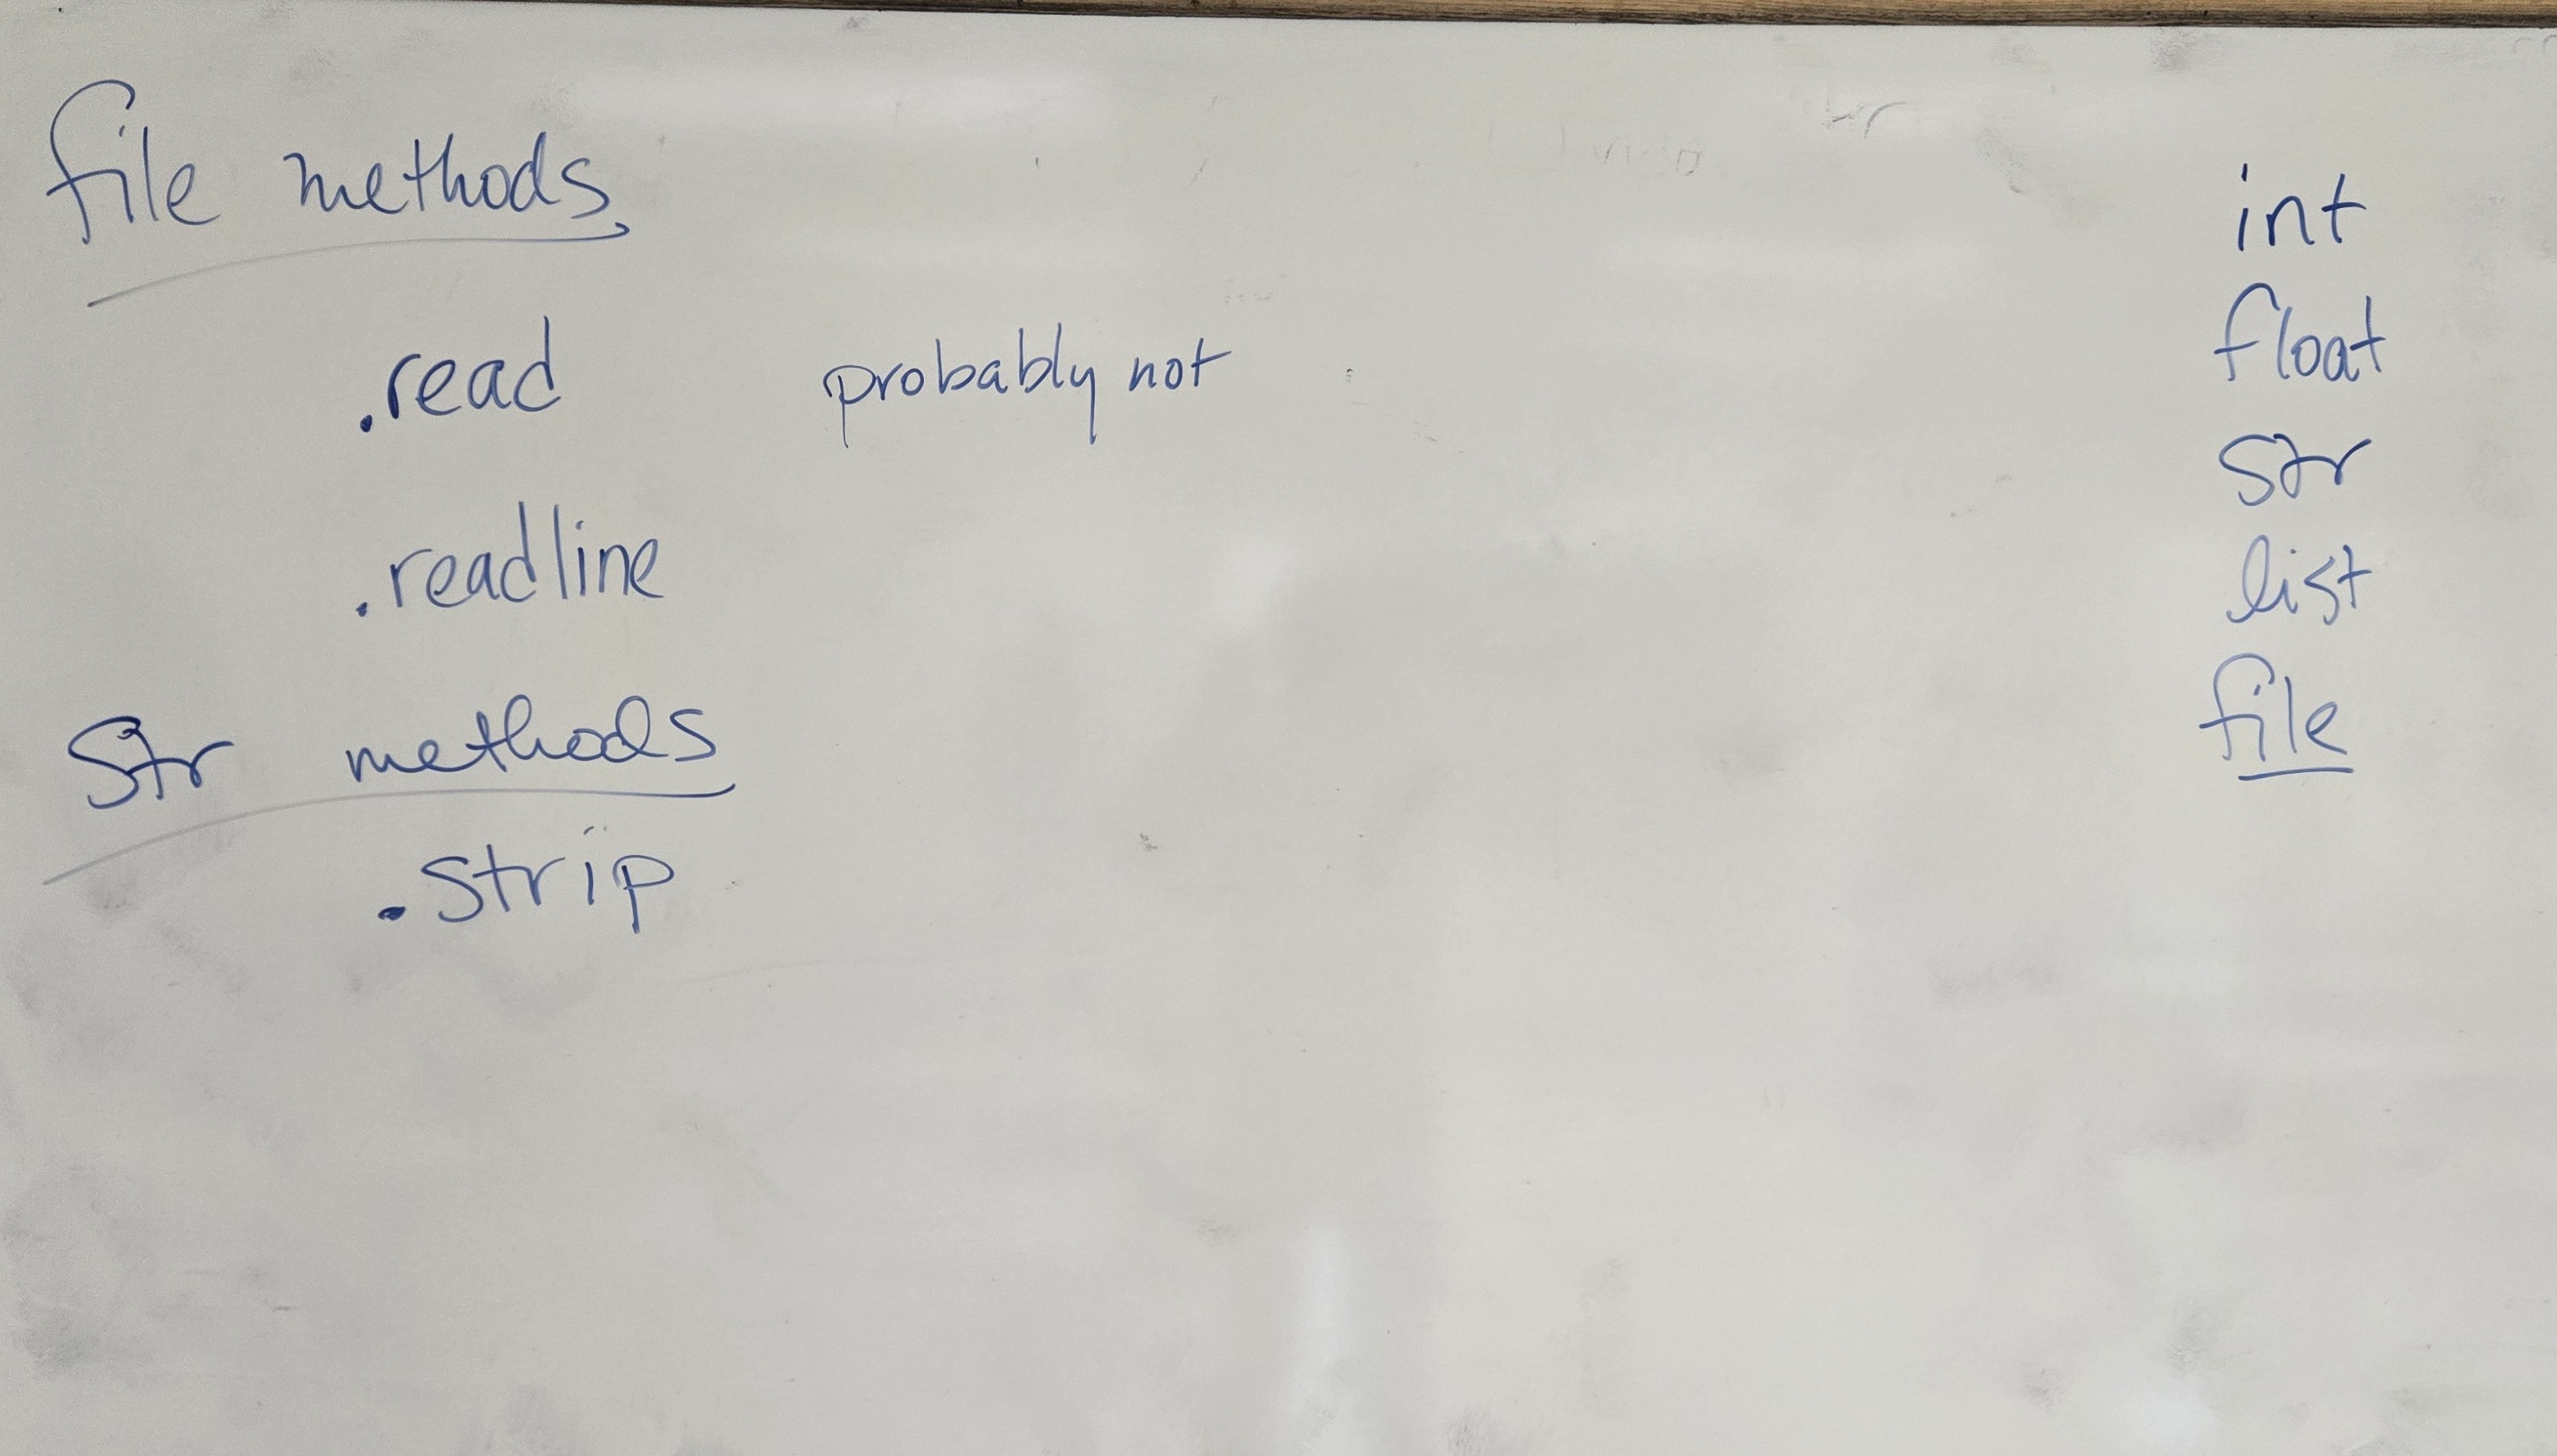 file methods
.read probably not
.readline
Str methods
.strip
int
float
str
list
file